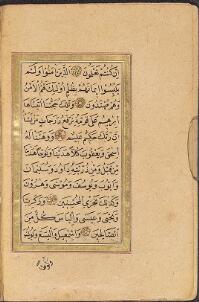 ان كنتم تعلمون الذين امنوا ولم
يلبسوا ايمانهم بظلم اولئك لهم الامن
وهم مهتدون وتلك حجتنا اتيناها
ابرهيم على قومه نرفع درجات من نشا
ان ربك حكيم عليم ووهبنا له
اسحق ويعقوب كلا هدينا ونوحا هدينا
من قبل ومن ذريته داود وسليمان
وايوب ويوسف وموسى وهرون
وكذلك نجزي المحسنين وزكريا
ويحيى وعيسى والياس كل من
الصالحين واسمعيل واليسع ويونس